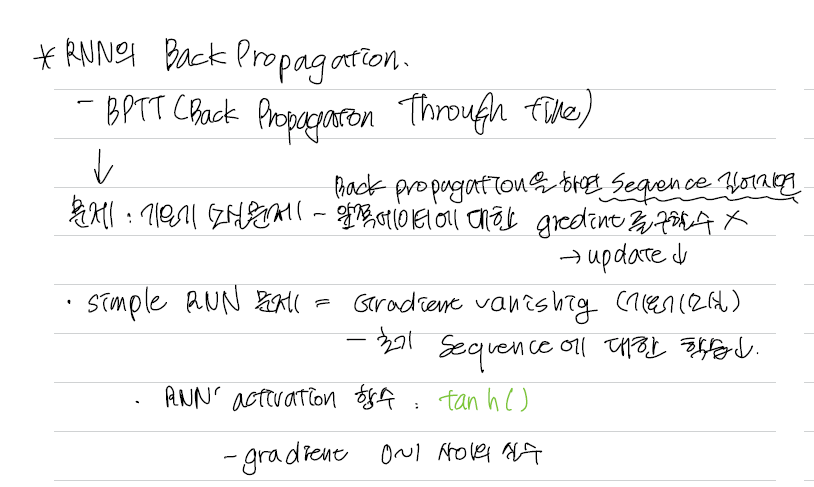 * RNN의 Back Propagation.
- BPTT (Back Propagation Through time)
↓
Back propagation을 하면 Sequence 길어지면
문제 : 기울기 소실문제 - 앞쪽데이터에 대한 gredint를 구할수 X
→ update ↓
· simple RNN 문제 = Gradient vanishig (기울기소실)
- 초기 Sequence에 대한 학습↓.
· RNN' activation 함수 : tanh()
- gradient 0~1 사이의 실수